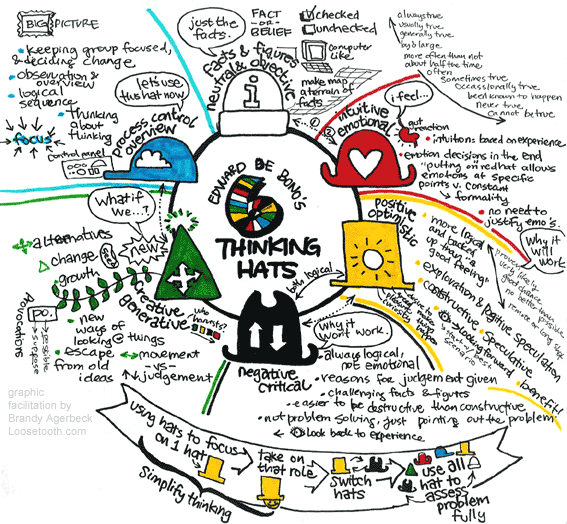 BIG PICTURE
• keeping group focused,
& deciding change
• observation &
overview
• logical
sequence
• thinking
about
thinking
focus
control panel
let's use
this hat now.
process control
overview
just the
facts.
FACT
-OR-
BELIEF
checked
unchecked
computer
like
facts & figures
neutral & objective
make map
a terrain of
facts
i
① ②
always true
usually true
generally true
by & large
more often than not
about half the time
often
sometimes true
occassionally true
been known to happen
never true
cannot be true
i feel...
gut
reaction
intuitive
emotional
• intuitions based on experience
• emotion decisions in the end
• "putting on red hat allows
emotions at specific
points v. constant
↳ formality
• no need to
justify emo's.
EDWARD DE BONO'S
6
THINKING
HATS
both logical
what if
we...?
new
new
creative
generative
alternatives
change
growth
po.
provocations
suppose
possible
• new
ways of
looking @ things
• escape
from old
ideas
movement
-vs-
judgement
who
harvests?
positive
optimistic
Why it
will work
• more logical
and backed
up than "a
good feeling"
• exploration & positive speculation
• constructive
• speculative
• looking forward
• benefit!
proven
very likely
good chance
no better than
possible
remote or long shot
why it won't work.
negative
critical
• always logical,
not emotional
• reasons for judgement given
• challenging facts & figures
• easier to be destructive than constructive
• not problem solving, just pointing out the problem
look back to experience
using hats to focus
on 1 hat
take on
that role
switch
hats
use all
hat to
assess
problem
fully
simplify thinking
graphic
facilitation by
Brandy Agerbeck
Loosetooth.com